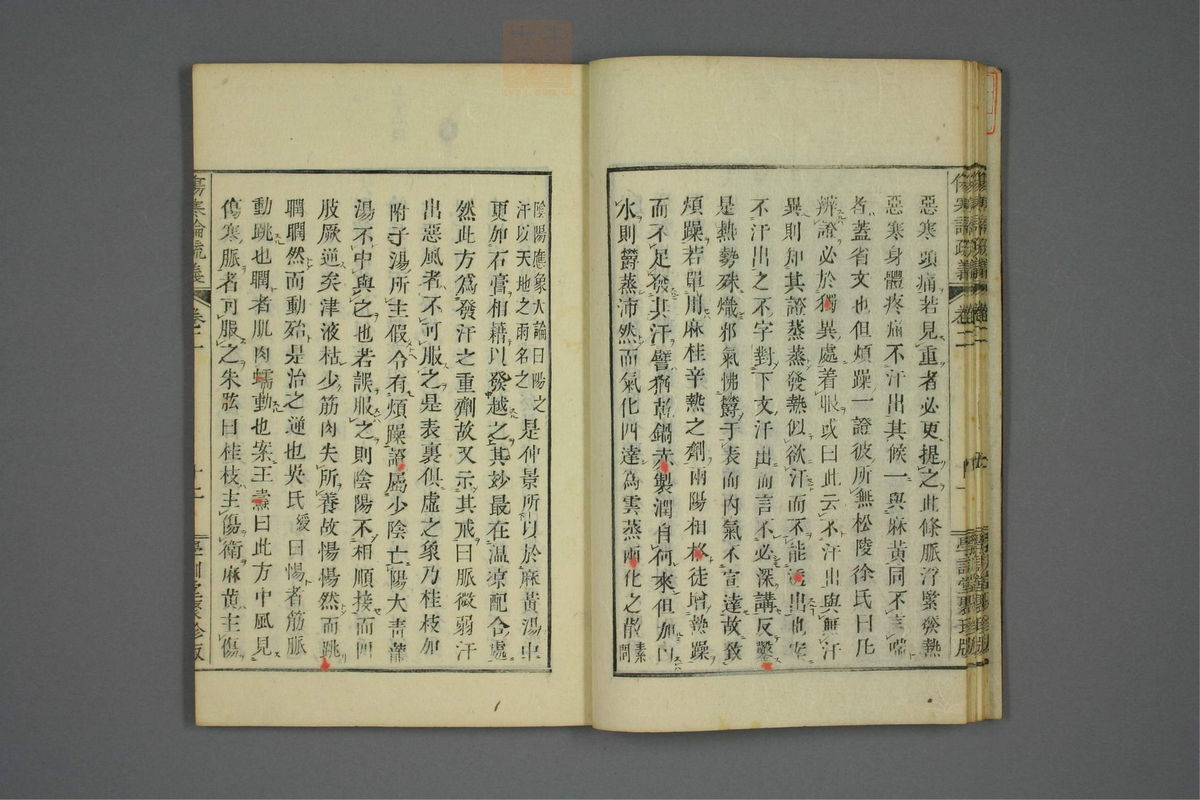 傷寒論疏義
卷二
十一
學訓堂聚珍版
惡寒頭痛若見重者必更提之此條脈浮緊發熱
惡寒身體疼痛不汗出其候一與麻黃同不言喘
者蓋省文也但煩躁一證彼所無松陵徐氏曰凡
辨證必於獨異處着眼或曰此云不汗出與無汗
異則知其證蒸蒸發熱似欲汗而不能透出也案
不汗出之不字對下文汗出而言不必深講反鑿
是熱勢殊熾邪氣怫鬱于表而內氣不宣達故致
煩躁若單用麻桂辛熱之劑兩陽相格徒增熱躁
而不足發其汗譬猶乾鍋赤製潤自何來但加以
水則鬱蒸沛然而氣化四達爲雲蒸雨化之散素問
陰陽應象大論曰陽之汗以天地之雨名之是仲景所以於麻黃湯中
更加石膏相藉以發越之其妙最在溫凉配合處
然此方爲發汗之重劑故又示其戒曰脈微弱汗
出惡風者不可服之是表裏俱虛之象乃桂枝加
附子湯所主假令有煩躁證屬少陰亡陽大靑龍
湯不中與之也若誤服之則陰陽不相順接而四
肢厥逆矣津液枯少筋肉失所養故惕惕然而跳
瞤瞤然而動殆是治之逆也吳氏綬曰惕者筋脈
動跳也瞤者肌肉蠕動也案王肅曰此方中風見
傷寒脈者可服之朱肱曰桂枝主傷衛麻黃主傷
傷寒論疏義
卷二
十二
學訓堂聚珍版